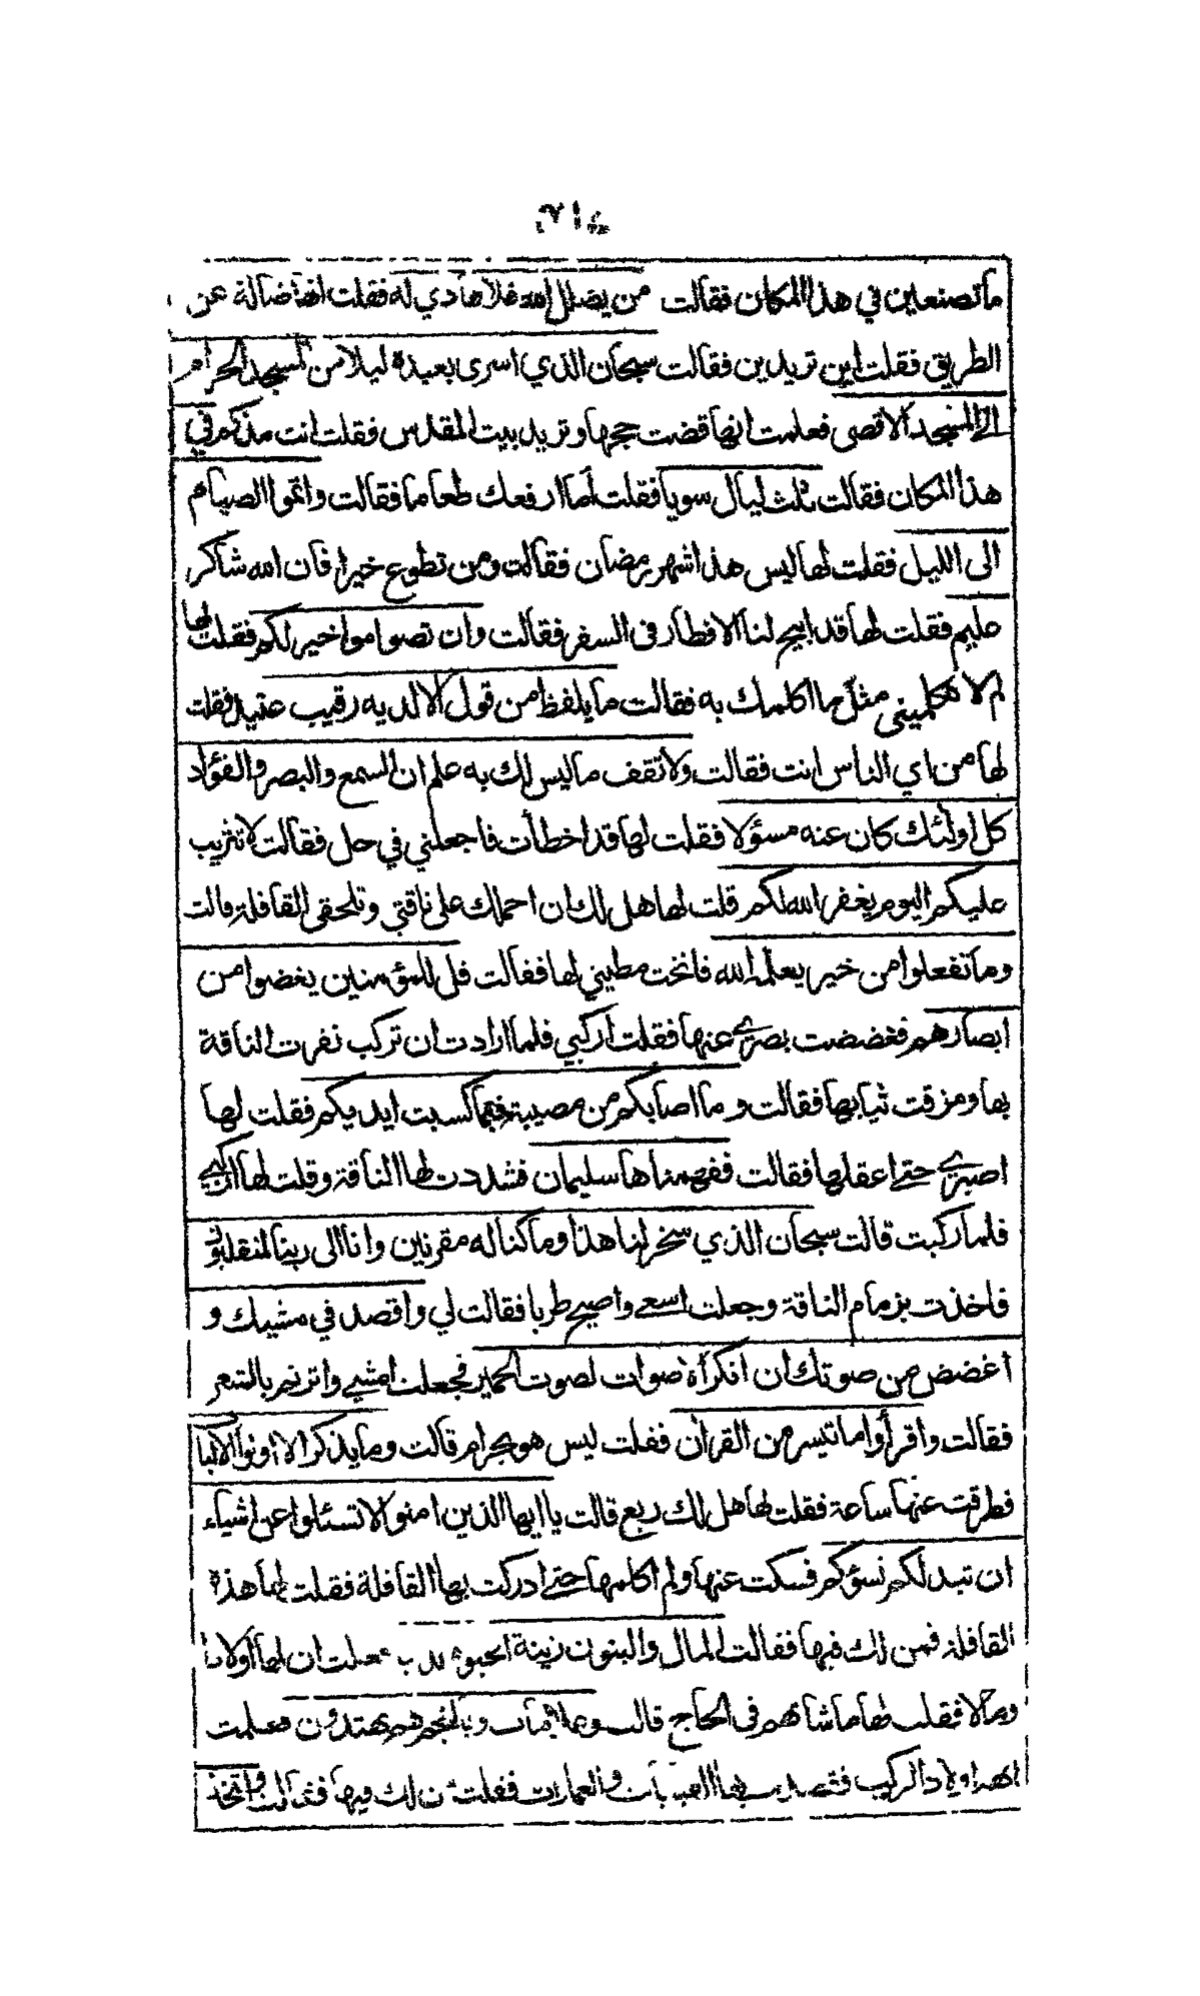 ما تصنعين في هذا المكان فقالت من يضلل الله فلا هادي له فقلت انها ضالة عن
الطريق فقلت اين تريدين فقالت سبحان الذي اسرى بعبده ليلا من المسجد الحرام
الى المسجد الاقصى فعلمت انها قضت حجها وتريد بيت المقدس فقلت انت مذكم في
هذا المكان فقالت ثلث ليال سويا فقلت أما ارفعك طعاما فقالت واتموا الصيام
الى الليل فقلت لها ليس هذا شهر رمضان فقالت ومن تطوع خيرا فان الله شاكر
عليم فقلت لها قد ابيح لنا الافطار في السفر فقالت وان تصوموا خير لكم فقلت لها
لم لا تكلميني مثل ما اكلمك به فقالت ما يلفظ من قول الا لديه رقيب عتيد فقلت
لها من اي الناس انت فقالت ولا تقف ما ليس لك به علم ان السمع والبصر والفؤاد
كل اولئك كان عنه مسؤلا فقلت لها قد اخطأت فاجعلني في حل فقالت لا تثريب
عليكم اليوم يغفر الله لكم قلت لها هل لك ان احملك على ناقتي وتلحقى القافلة قالت
وما تفعلوا من خير يعلمه الله فانخت مطيتي لها فقالت قل للمؤمنين يغضوا من
ابصارهم فغضضت بصري عنها فقلت اركبي فلما ارادت ان تركب نفرت الناقة
بها ومزقت ثيابها فقالت وما اصابكم من مصيبة فبما كسبت ايديكم فقلت لها
اصبري حتى اعقلها فقالت ففهمناها سليمان فشددت لها الناقة وقلت لها اركبي
فلما ركبت قالت سبحان الذي سخر لنا هذا وما كنا له مقرنين وانا الى ربنا لمنقلبون
فاخذت بزمام الناقة وجعلت اسعى واصيح طربا فقالت لي واقصد في مشيك و
اغضض من صوتك ان انكر الاصوات لصوت الحمير فجعلت امشي واترنم بالشعر
فقالت واقرأوا ما تيسر من القرآن فقلت ليس هو بحرام قالت وما يذكر الا اولوا الالبا
فطرقت عنها ساعة فقلت لها هل لك ربع قالت يا ايها الذين امنوا لا تسئلوا عن اشياء
ان تبد لكم تسؤكم فسكت عنها ولم اكلمها حتى ادركت بها القافلة فقلت لها هذه
القافلة فمن لك فيها فقالت المال والبنون زينة الحيوة فعلمت ان لها اولادا
ومالا فقلت لها ما شانهم في الحاج قالت وعلامات وبالنجم هم يهتدون فعلمت
انهم ادلاء الركب فقصدت بها القباب والعمارات فقلت من لك فيها فقالت واتخذ